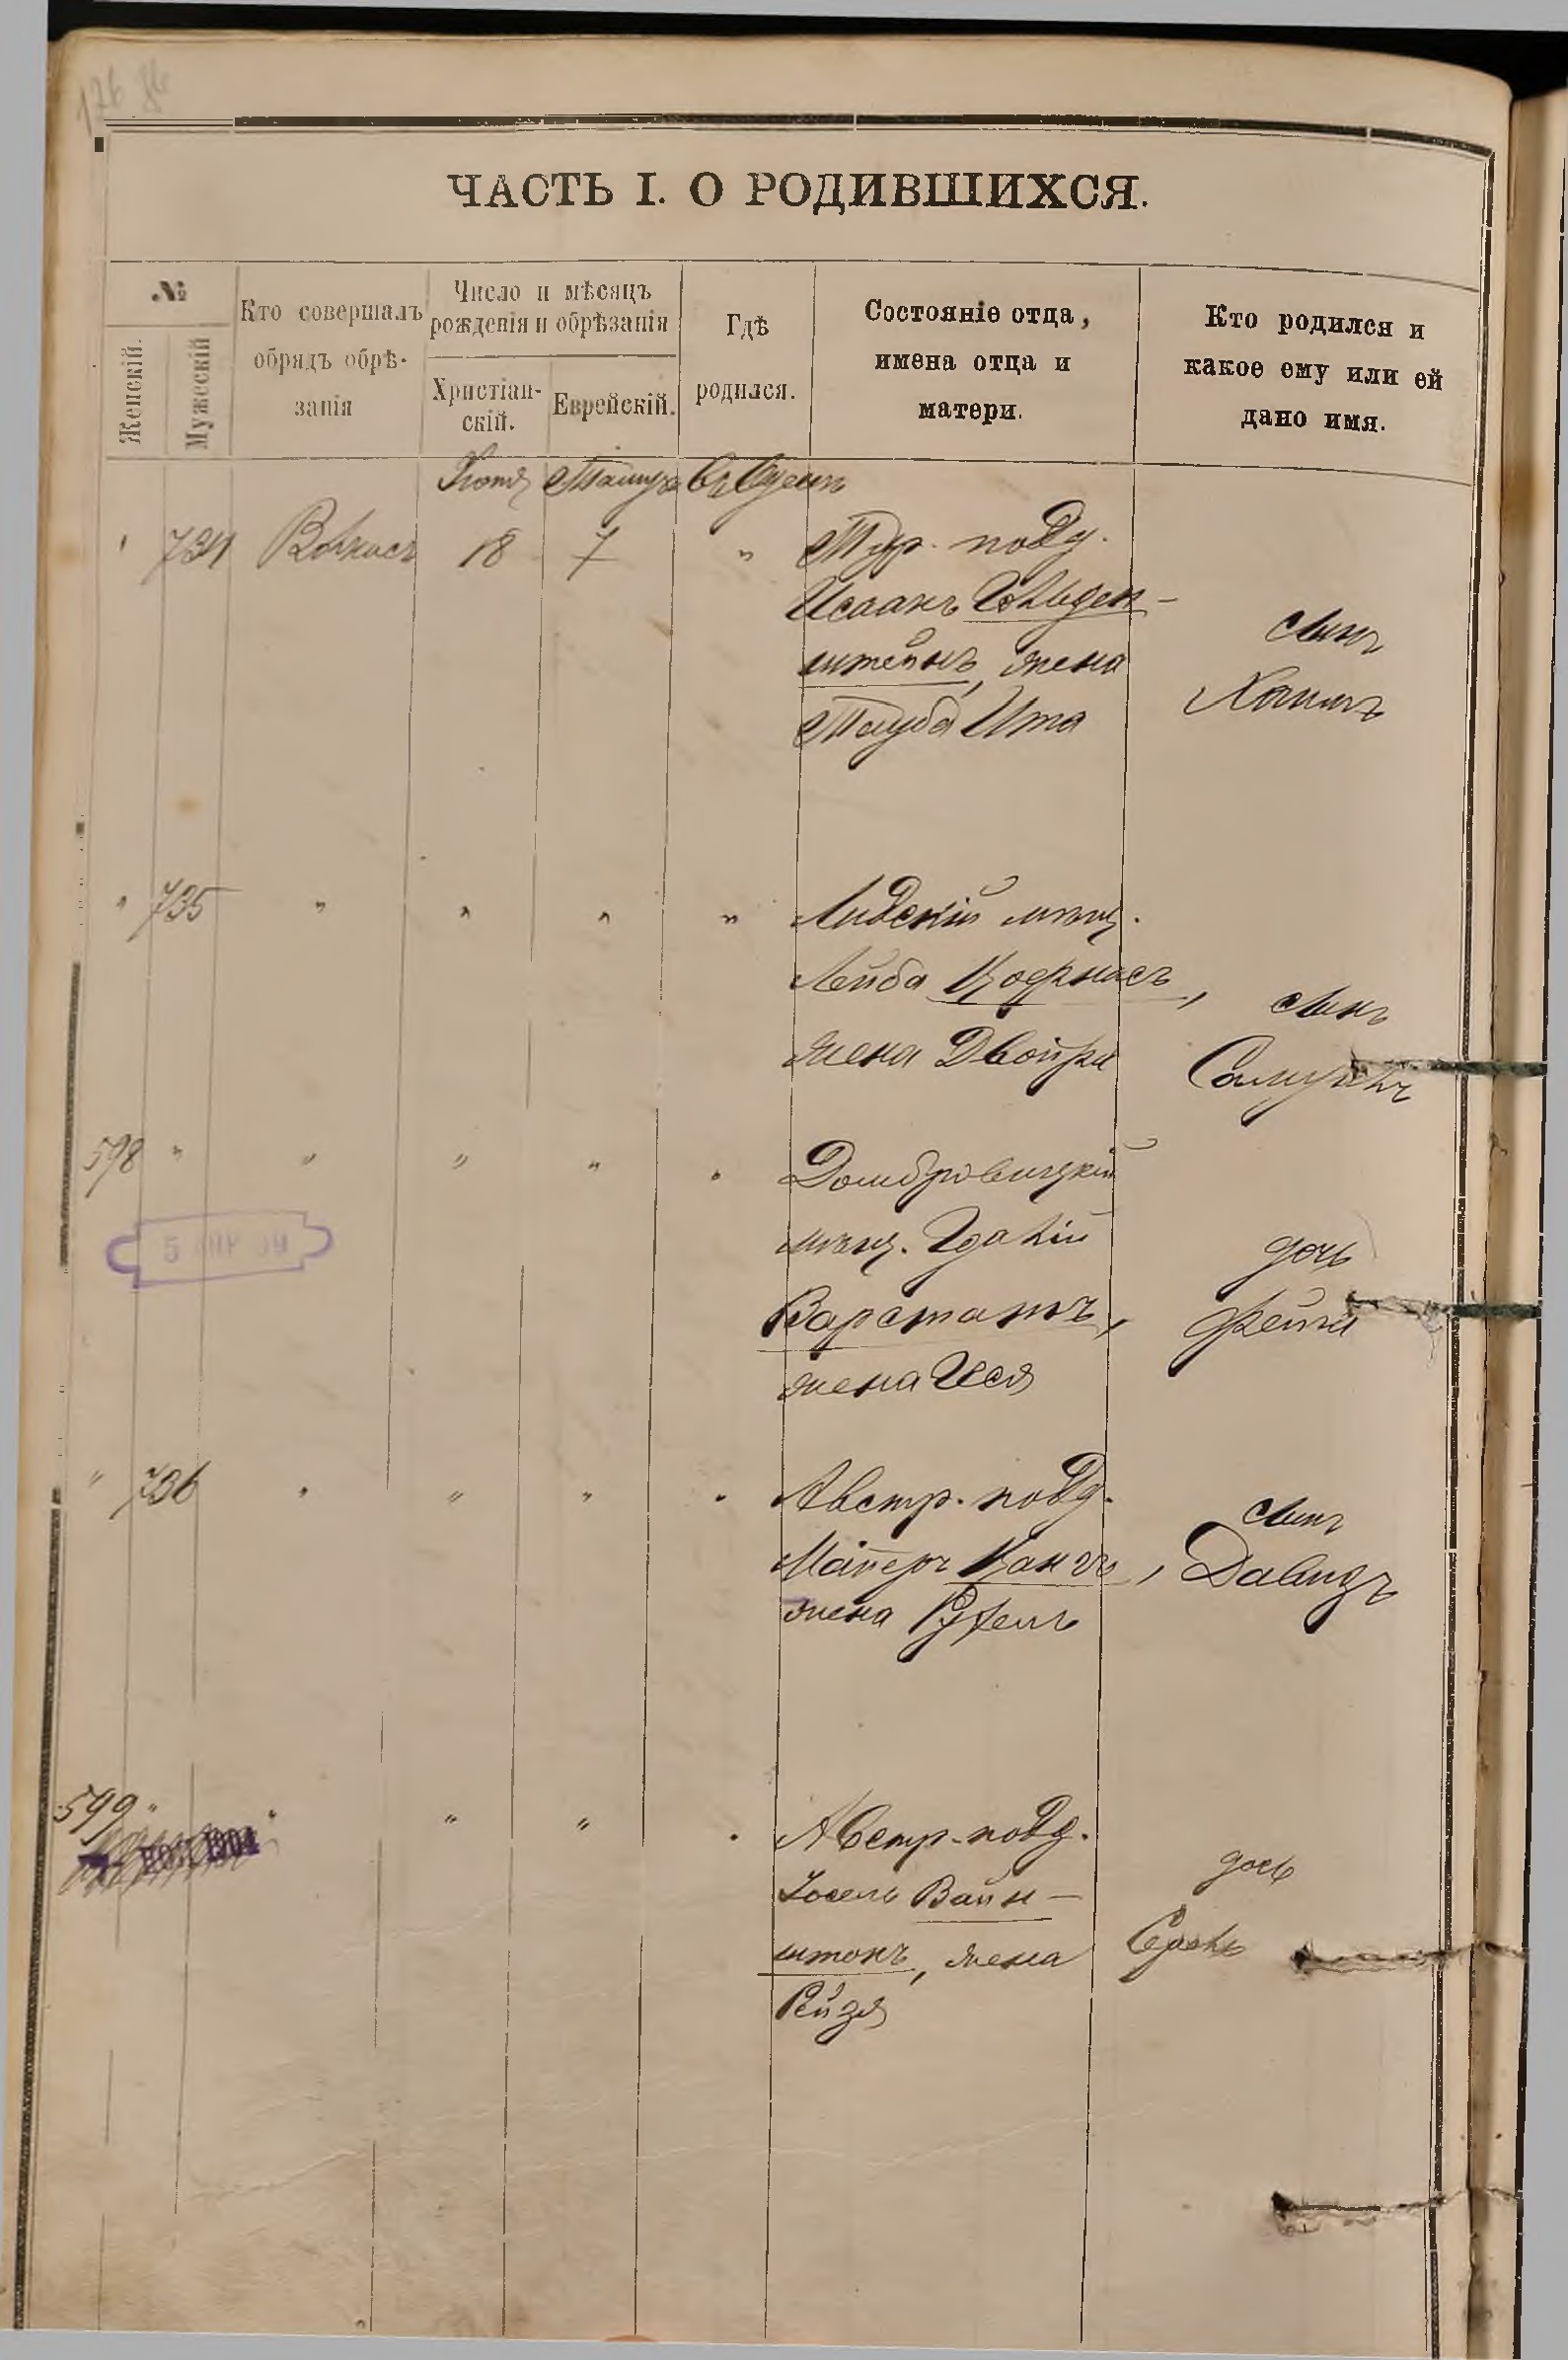 ЧАСТЬ I. О РОДИВШИХСЯ.
№
Женскій.
Мужескій
Кто совершалъ
обрядъ обрѣ-
занія
Число и мѣсяцъ
рожденія и обрѣзанія
Христіан-
скій.
Еврейскій.
Гдѣ
родился.
Состояніе отца,
имена отца и
матери.
Кто родился и
какое ему или ей
дано имя.
Іюня Тамуза въ Одессѣ
" 734 18 7 " Тур. подд.
Исаакъ Гольден-
штейнъ, жена
Ита
сынъ
Хаимъ
" 735 " " " " Лидскій мѣщ.
Лейба
жена Двойра
сынъ
Самуилъ
598 " " " " " Домбровицкій
мѣщ. Гдалій
Варстатъ,
жена Іся
дочь
Фейга
" 736 " " " " Австр. подд.
Маіеръ
жена Рухель
сынъ
Давидъ
599 " " " " " Австр. подд.
Іосель Вайн-
штокъ, жена
Рейзя
дочь